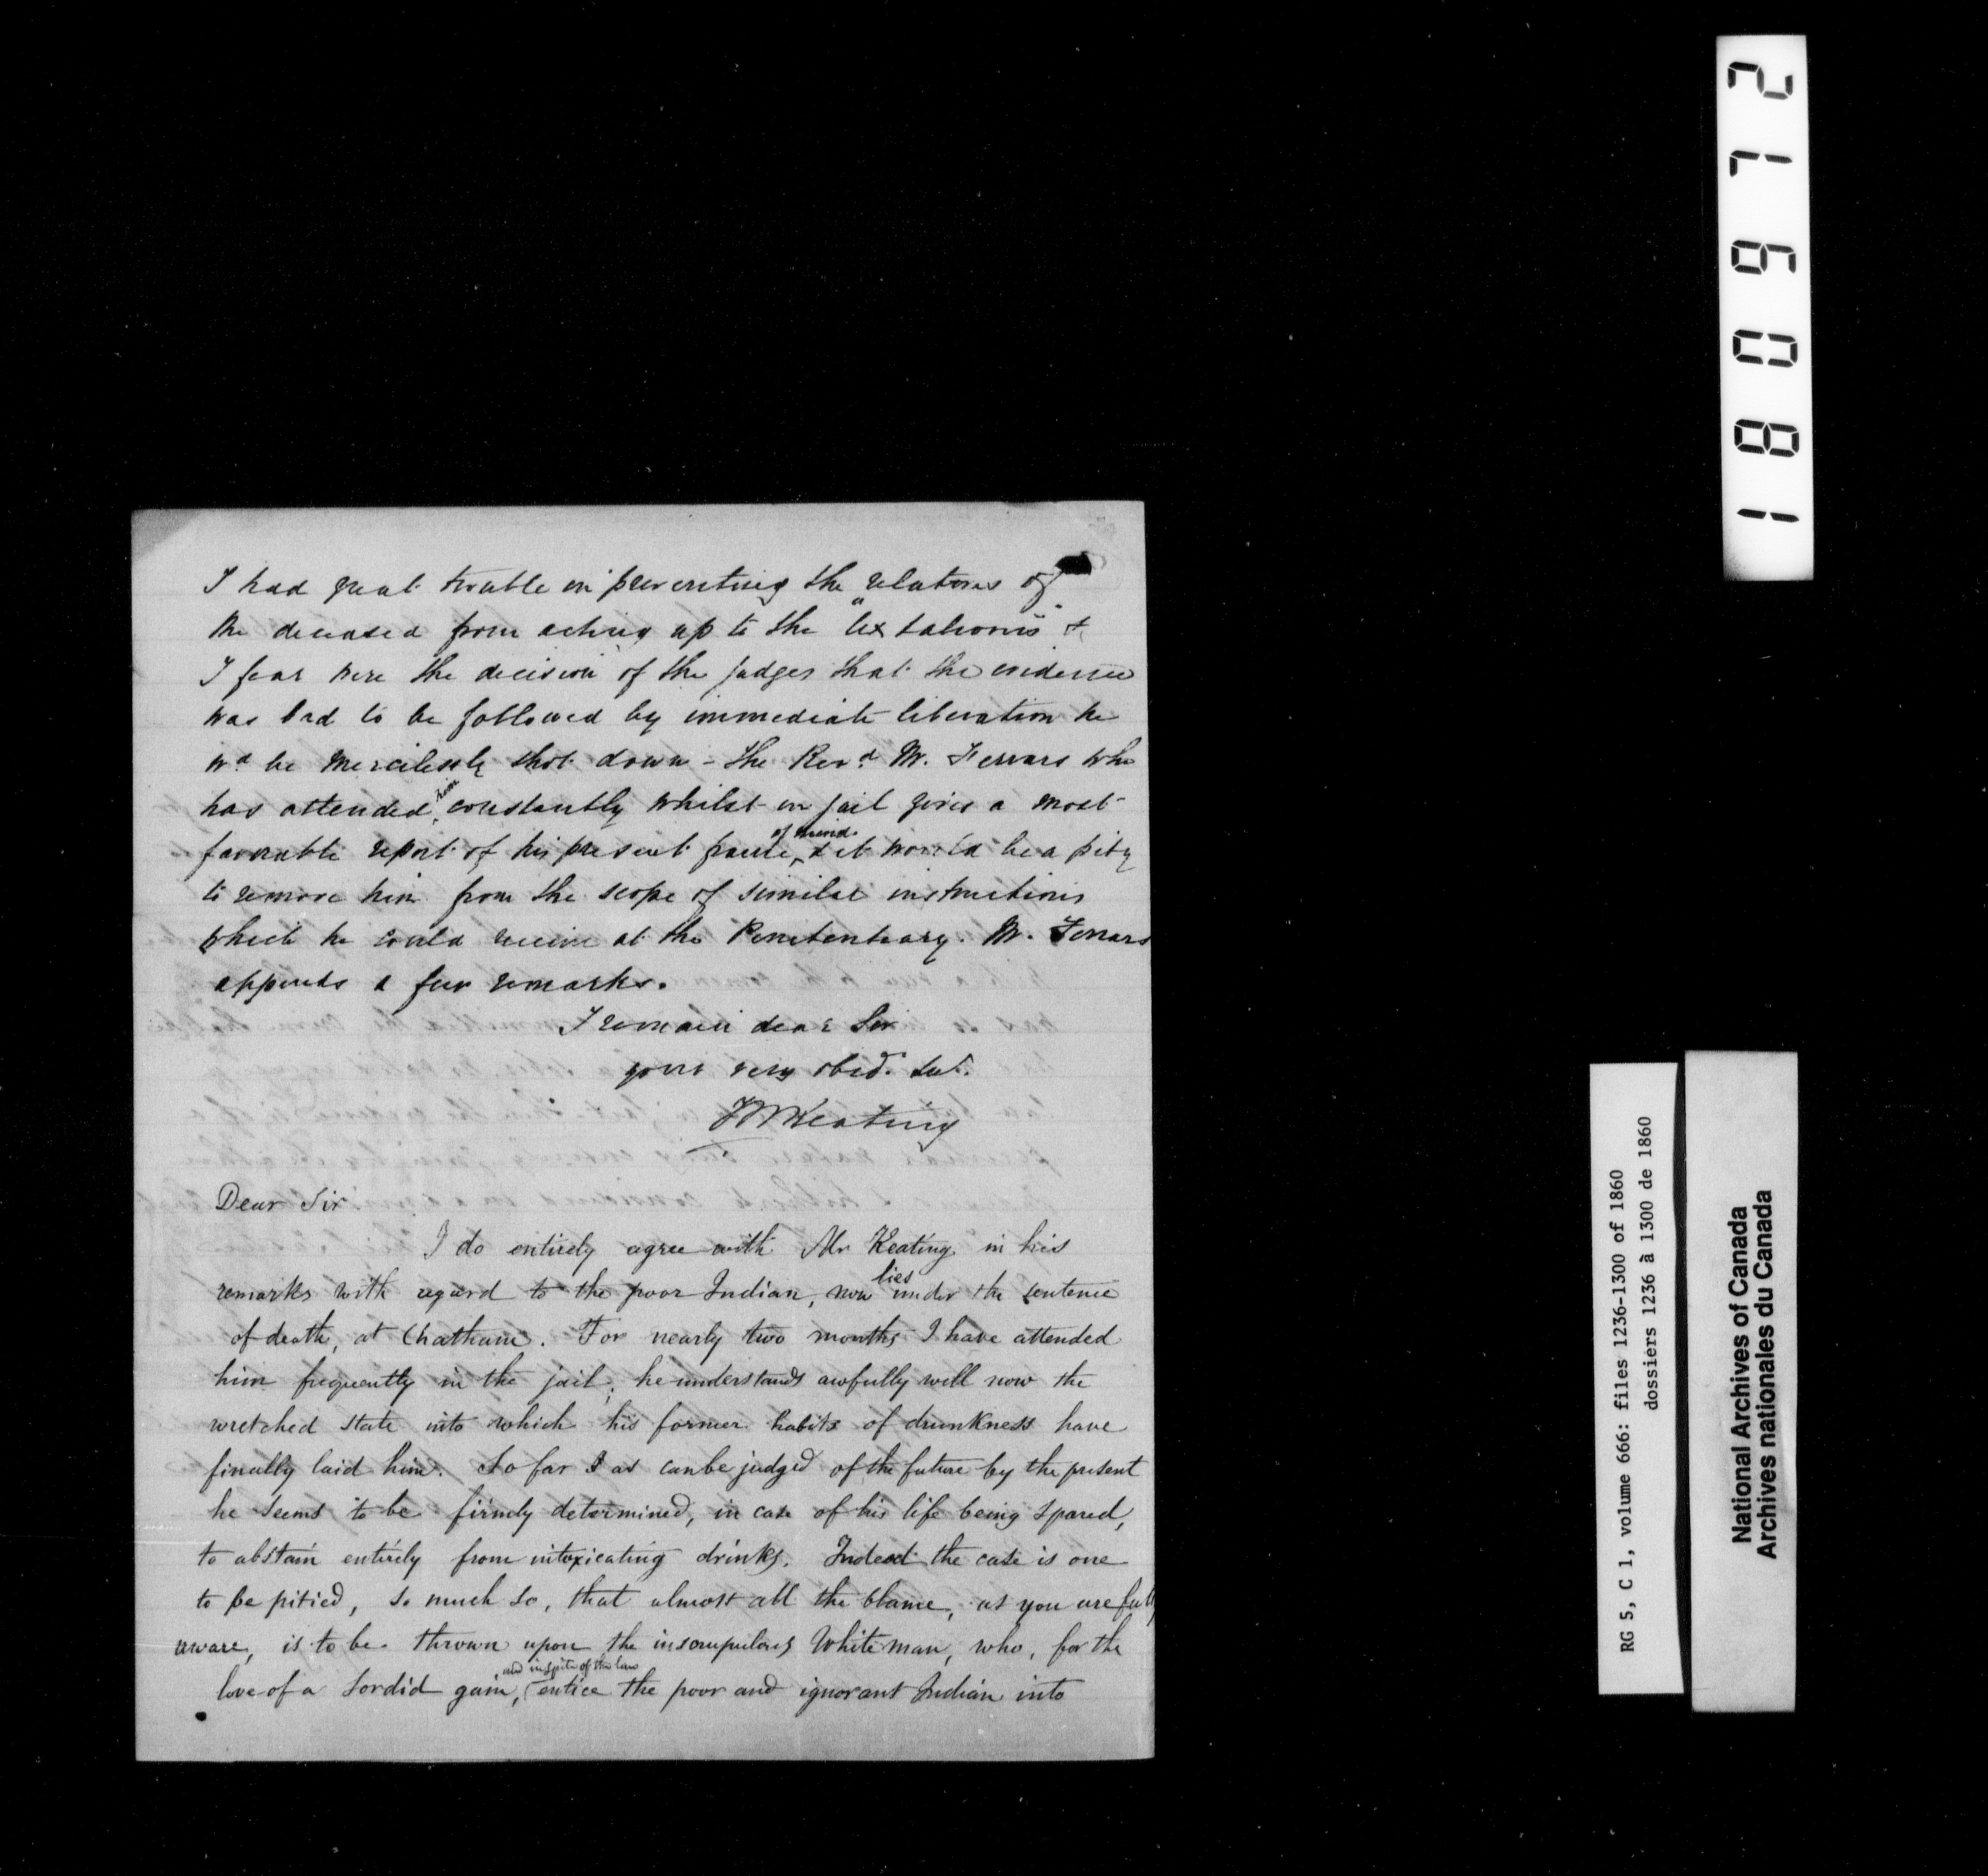 I had great trouble in preventing the relatives of
the deceased from acting up to the "lex talionis" &
I fear were the decision of the judges that the evidence
was bad to be followed by immediate liberation he
wd be mercilessly shot down - the Revd Mr. Ferrars who
has attended him constantly whilst in jail gives a most
favorable report of his present frame of mind, & it would be a pity
to remove him from the scope of similar instructions
which he could receive at the Penitentiary. Mr. Ferrars
appends a few remarks.
I remain dear Sir
your very obed. Svt.
JWKeating
Dear Sir
I do entirely agree with Mr Keating in his
remarks with regard to the poor Indian, now lies under the sentence
of death, at Chatham. For nearly two months I have attended
him frequently in the jail; he understands awfully well now the
wretched state into which his former habits of drunkness have
finally laid him. So far I as can be judged of the future by the present
he seems to be firmly determined, in case of his life being spared,
to abstain entirely from intoxicating drinks. Indeed the case is one
to be pitied, so much so, that almost all the blame, as you are fully
aware, is to be thrown upon the inscrupulous White man, who, for the
love of a sordid gain, and inspite of the law entice the poor and ignorant Indian into
180972
RG 5, C 1, volume 666: files 1236-1300 of 1860
dossiers 1236 à 1300 de 1860
National Archives of Canada
Archives nationales du Canada